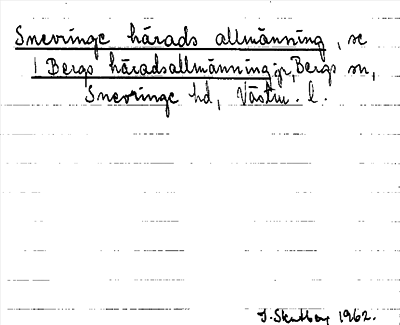 Snevringe härads allmänning, se
1 Bergs häradsallmänning gr, Bergs sn,
Snevringe hd, Västm. l.
1962.